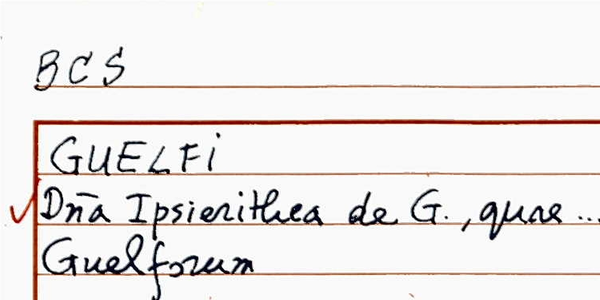 BCS
GUELFI
Dn̄a Ipsierithea de G., quae ...
Guelforum